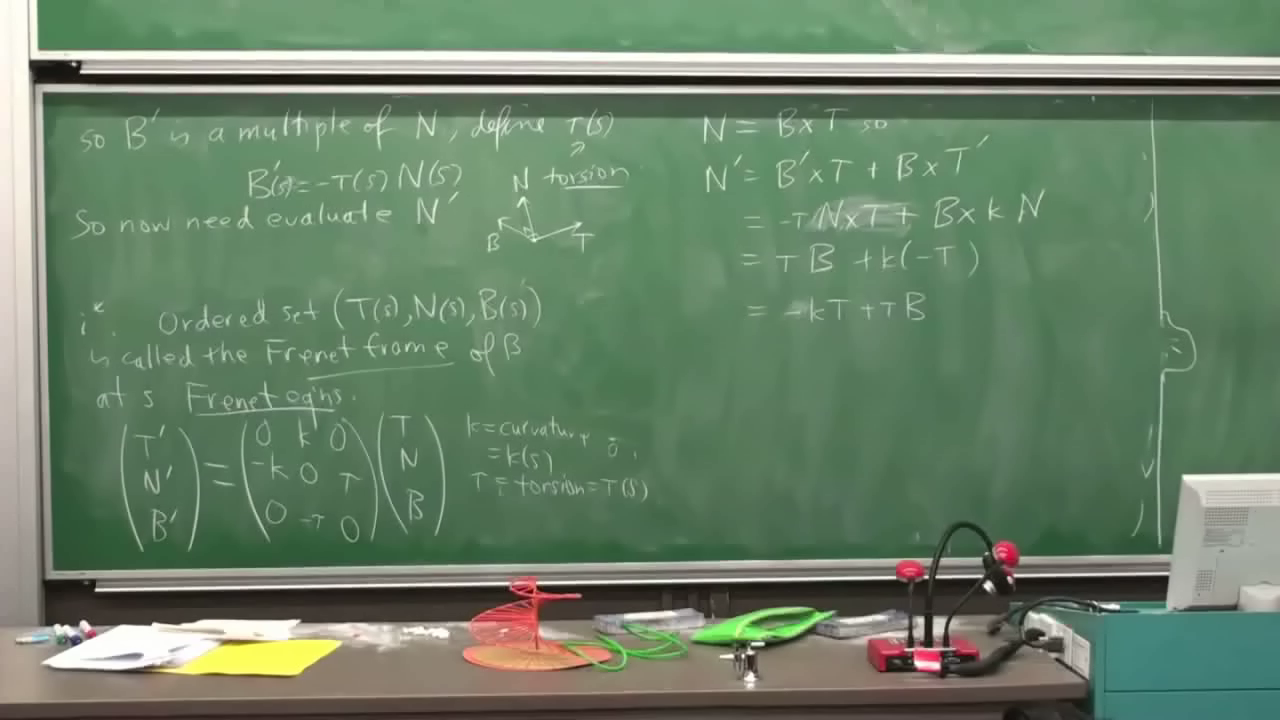 so B' is a multiple of N, define τ(s)
torsion
B'(s) = -τ(s) N(s)
So now need evaluate N'
N
B
T
i*. Ordered set (T(s), N(s), B(s))
is called the Frenet frame of β
at s Frenet eqns.
(T' N' B') = (0 k 0 -k 0 τ 0 -τ 0) (T N B)
k = curvature
= k(s)
τ = torsion = τ(s)
N = B×T so
N' = B'×T + B×T'
= -τ N×T + B×k N
= τ B + k(-T)
= -kT + τB